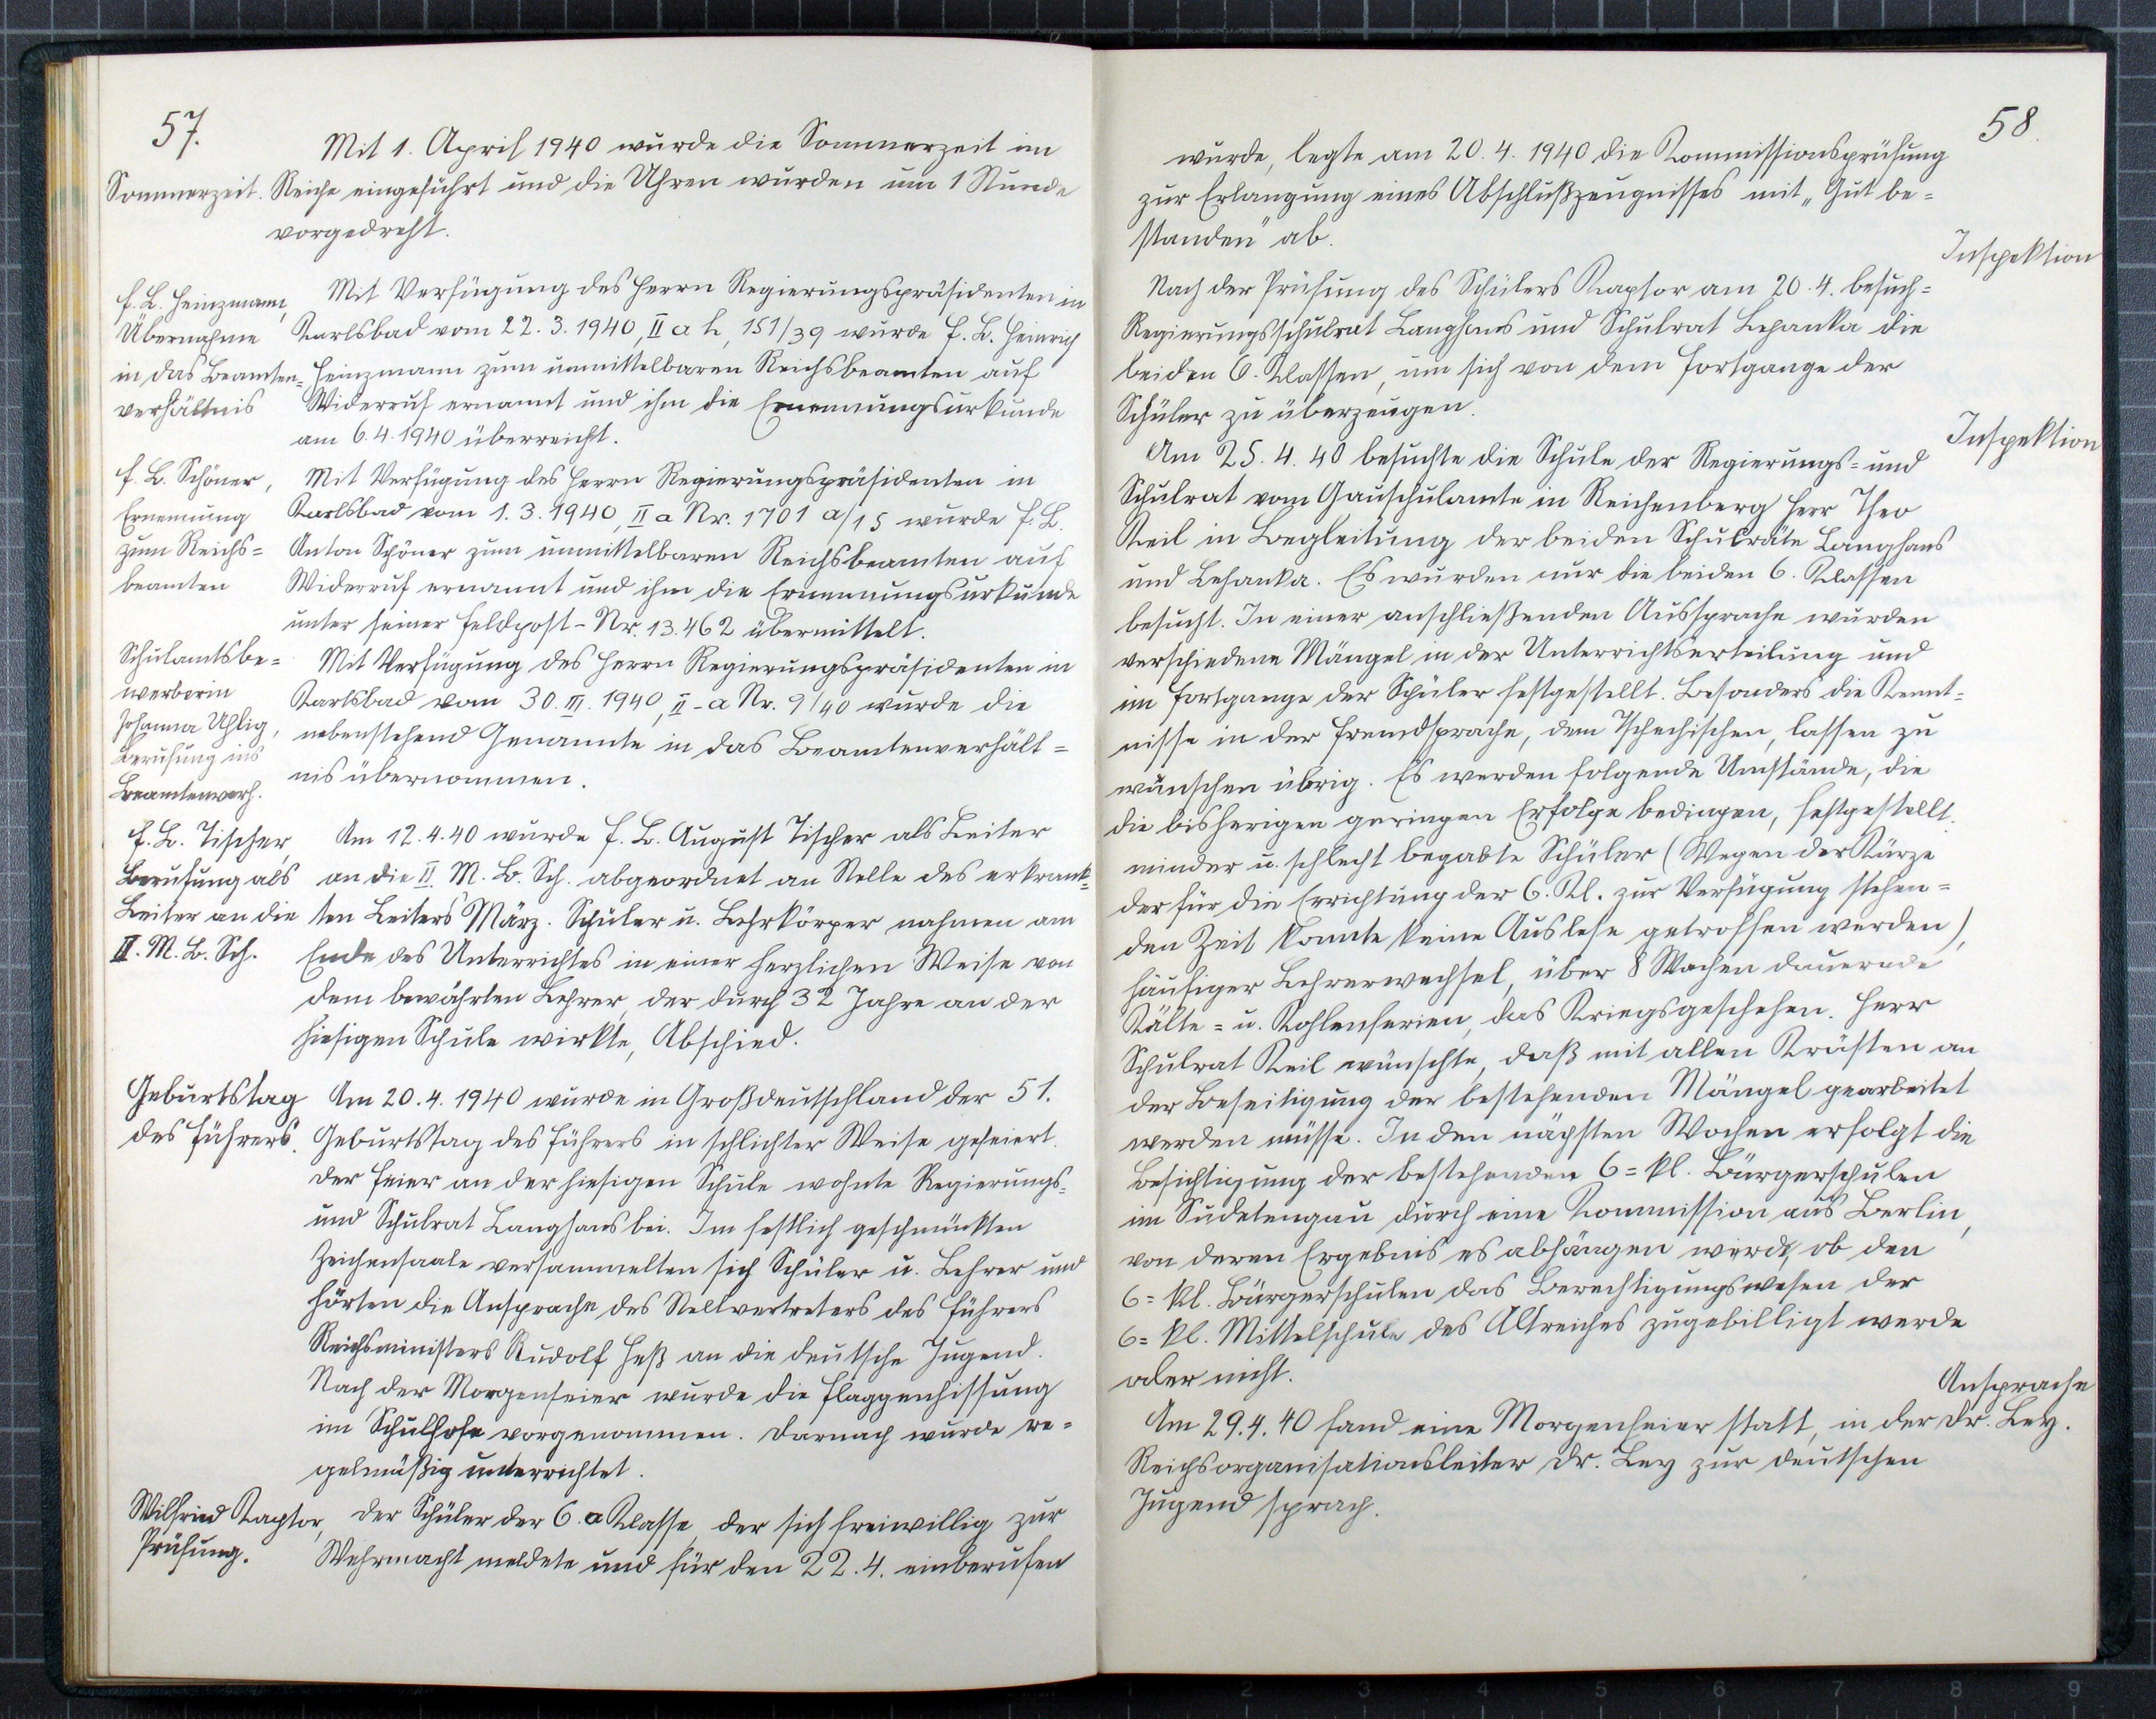 57.
Mit 1. April 1940 wurde die Sommerzeit im
Sommerzeit. Reiche eingeführt und die Uhren wurden um 1 Stunde
vorgedreht.
f. L. Heinzmann,
Übernahme
in das Beamten=
verhältnis
Mit Verfügung des Herrn Regierungspräsidenten in
Karlsbad vom 22. 3. 1940, II a h, 151/39 wurde f. L. Heinrich
Heinzmann zum unmittelbaren Reichsbeamten auf
Widerruf ernannt und ihm die Ernennungsurkunde
am 6. 4. 1940 überreicht.
f. L. Schöner,
Ernennung
zum Reichs=
beamten
Mit Verfügung des Herrn Regierungspräsidenten in
Karlsbad vom 1. 3. 1940, II a Nr. 1701 a/15 wurde f. L.
Anton Schöner zum unmittelbaren Reichsbeamten auf
Widerruf ernannt und ihm die Ernennungsurkunde
unter seiner Feldpost-Nr. 13.462 übermittelt.
Schulamtsbe=
werberin
Johanna Uhlig,
Berufung ins
Beamtenverh.
Mit Verfügung des Herrn Regierungspräsidenten in
Karlsbad vom 30. III. 1940, II-a Nr. 9/40 wurde die
nebenstehend Genannte in das Beamtenverhält=
nis übernommen.
f. L. Tischer,
Berufung als
Leiter an die
II. M. B. Sch.
Am 12. 4. 40 wurde f. L. August Tischer als Leiter
an die II. M. B. Sch. abgeordnet an Stelle des erkrank=
ten Leiters März. Schüler u. Lehrkörper nahmen am
Ende des Unterrichtes in einer herzlichen Weise von
dem bewährten Lehrer, der durch 32 Jahre an der
hiesigen Schule wirkte, Abschied.
Geburtstag
des Führers.
Am 20. 4. 1940 wurde in Großdeutschland der 51.
Geburtstag des Führers in schlichter Weise gefeiert.
Der Feier an der hiesigen Schule wohnte Regierungs=
und Schulrat Langhans bei. Im festlich geschmückten
Zeichensaale versammelten sich Schüler u. Lehrer und
hörten die Ansprache des Stellvertreters des Führers
Reichsministers Rudolf Heß an die deutsche Jugend.
Nach der Morgenfeier wurde die Flaggenhissung
im Schulhofe vorgenommen. Darnach wurde re=
gelmäßig unterrichtet.
Wilfried Raptor,
Prüfung.
Der Schüler der 6. a Klasse, der sich freiwillig zur
Wehrmacht meldete und für den 22. 4. einberufen
58.
wurde, legte am 20. 4. 1940 die Kommissionsprüfung
zur Erlangung eines Abschlußzeugnisses mit „Gut be=
standen" ab.
Inspektion
Nach der Prüfung des Schülers Raptor am 20. 4. besuch=
Regierungsschulrat Langhans und Schulrat Lehanka die
beiden 6. Klassen, um sich von dem Fortgange der
Schüler zu überzeugen.
Inspektion
Am 25. 4. 40 besuchte die Schule der Regierungs= und
Schulrat vom Gauschulamte in Reichenberg Herr Theo
Keil in Begleitung der beiden Schulräte Langhans
und Lehanka. Es wurden nur die beiden 6. Klassen
besucht. In einer anschließenden Aussprache wurden
verschiedene Mängel in der Unterrichtserteilung und
im Fortgange der Schüler festgestellt. Besonders die Kennt=
nisse in der Fremdsprache, dem Tschechischen, lassen zu
wünschen übrig. Es werden folgende Umstände, die
die bisherigen geringen Erfolge bedingen, festgestellt.
minder u. schlecht begabte Schüler (Wegen der Kürze
der für die Errichtung der 6. Kl. zur Verfügung stehen=
den Zeit konnte keine Auslese getroffen werden),
häufiger Lehrerwechsel, über 8 Wochen dauernde
Kälte= u. Kohlenferien, das Kriegsgeschehen. Herr
Schulrat Keil wünschte, daß mit allen Kräften an
der Beseitigung der bestehenden Mängel gearbeitet
werden müsse. In den nächsten Wochen erfolgt die
Besichtigung der bestehenden 6=kl. Bürgerschulen
im Sudetengau durch eine Kommission aus Berlin,
von deren Ergebnis es abhängen werde, ob den
6=kl. Bürgerschulen das Berechtigungswesen der
6=kl. Mittelschule des Altreiches zugebilligt werde
oder nicht.
Ansprache
Dr. Ley.
Am 29. 4. 40 fand eine Morgenfeier statt, in der
Reichsorganisationsleiter Dr. Ley zur deutschen
Jugend sprach.
1 2 3 4 5 6 7 8 9